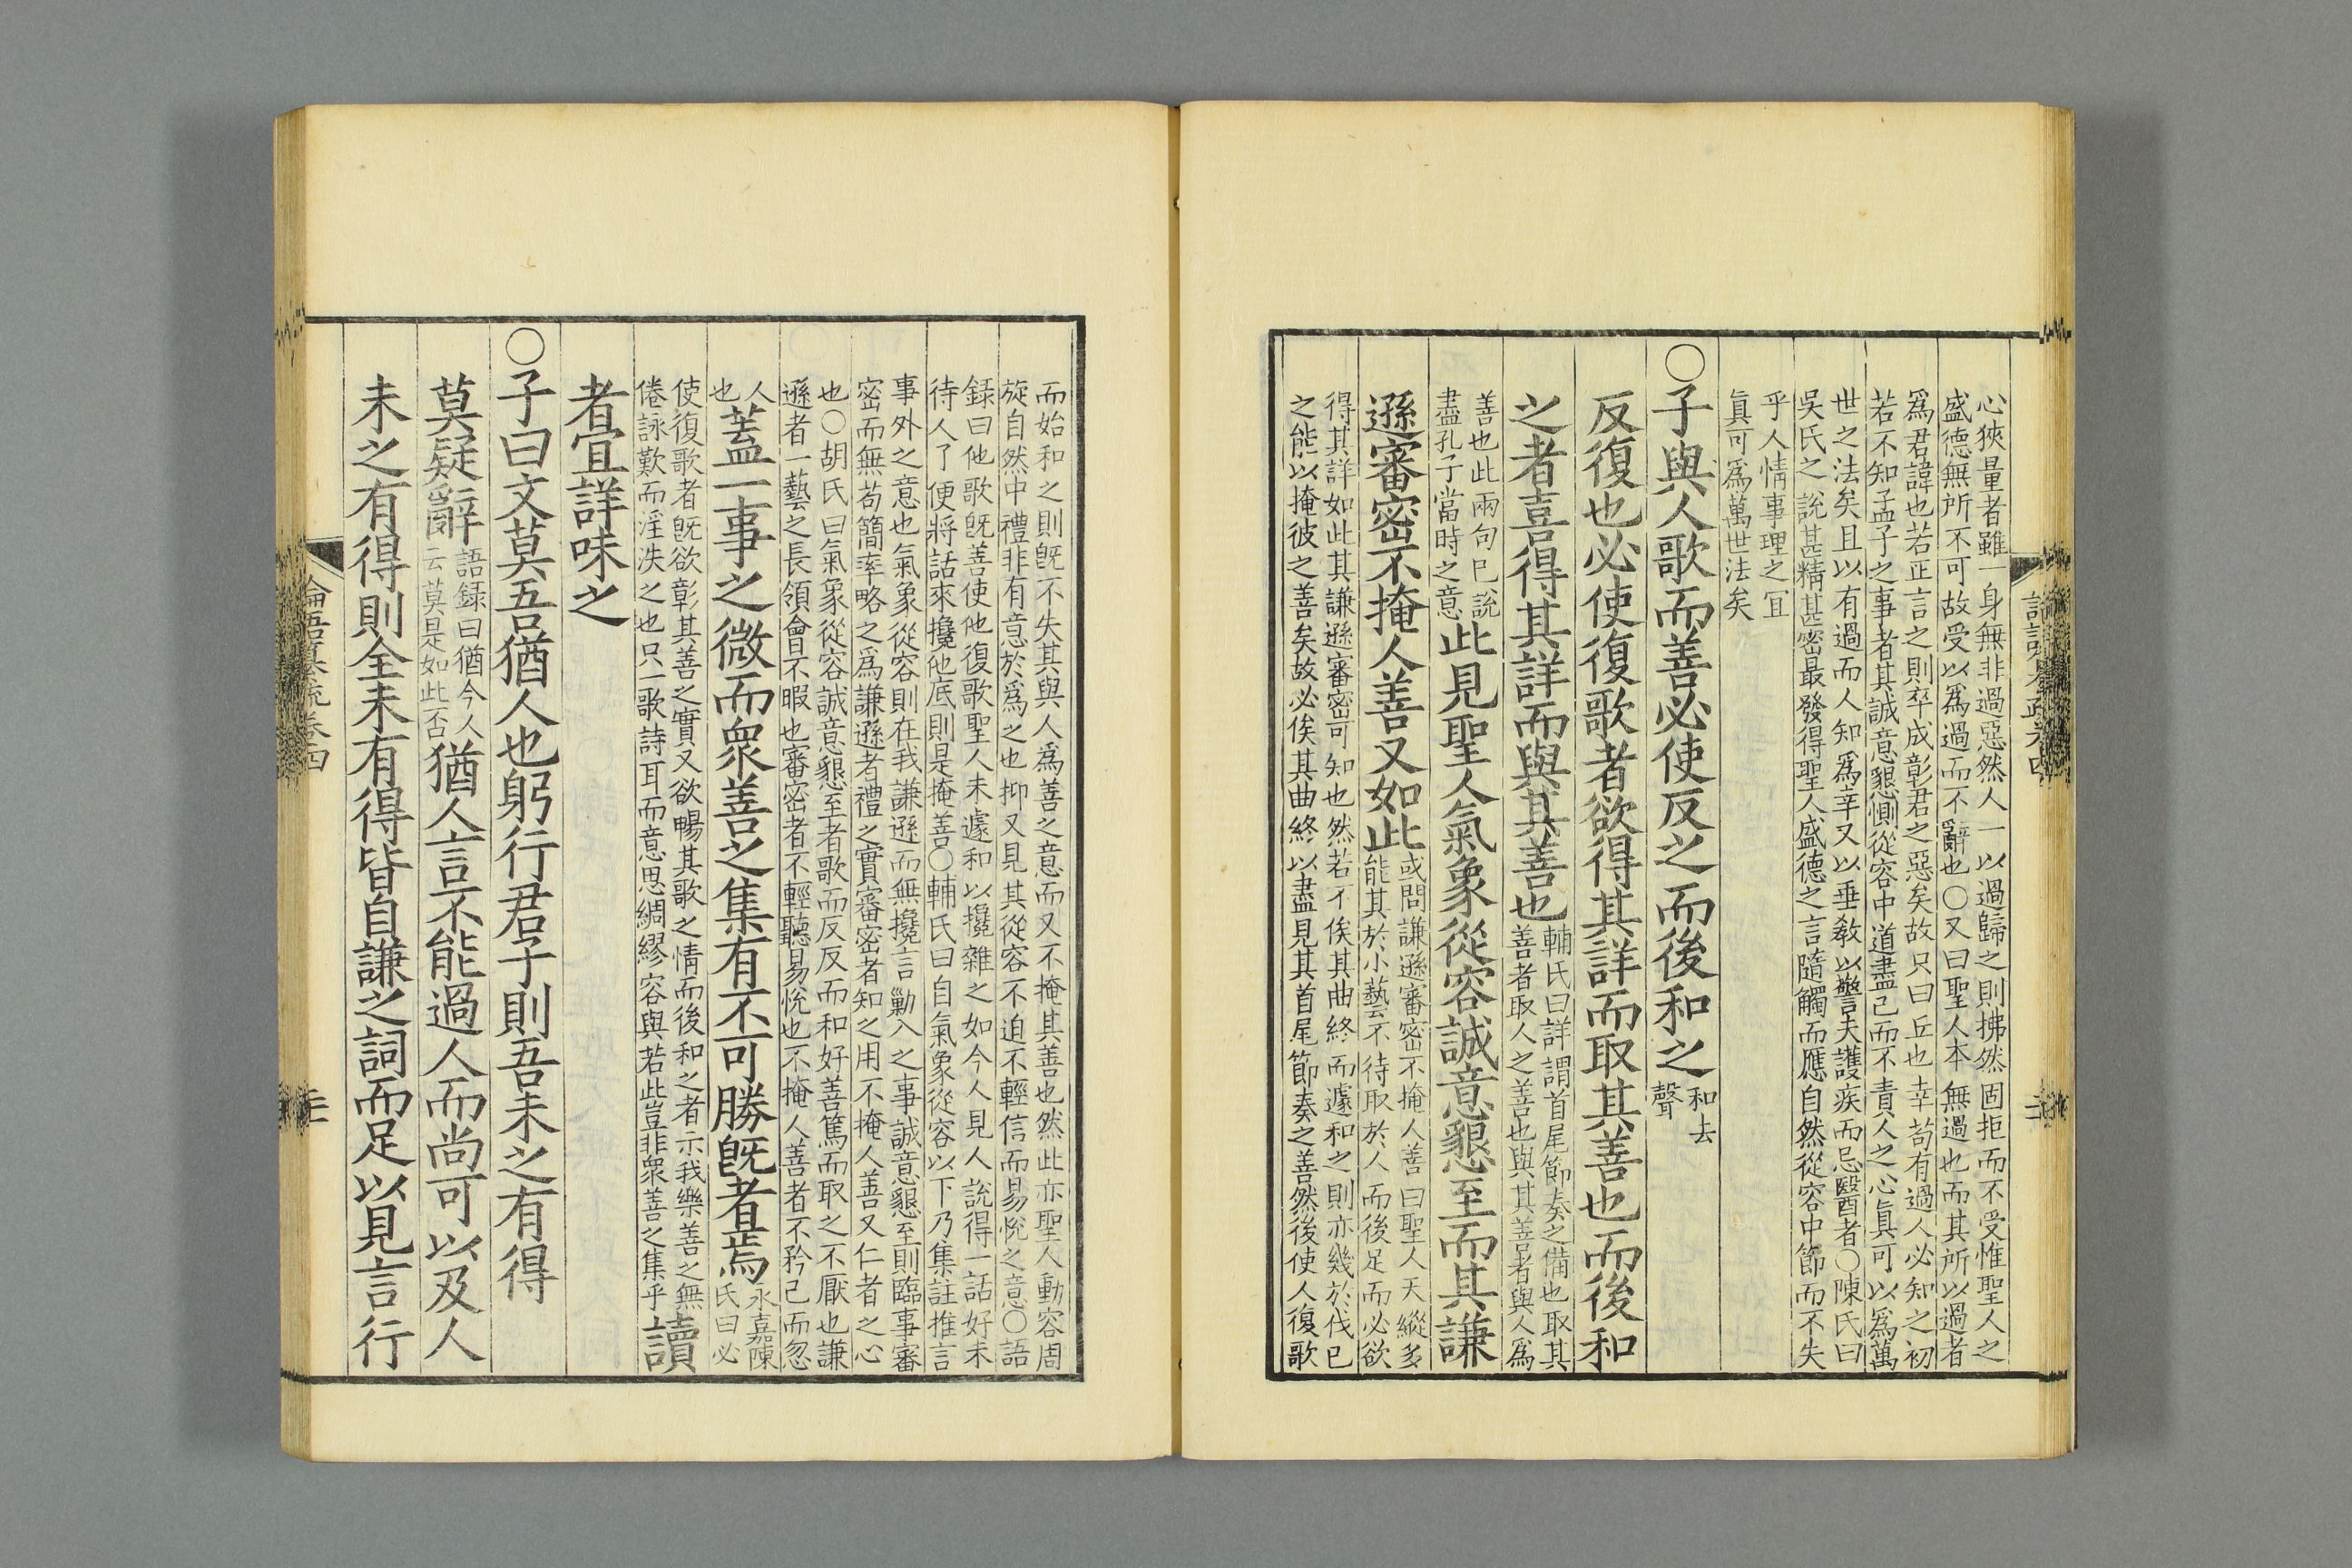 心狹量者雖一身無非過惡然人一以過歸之則拂然固拒而不受惟聖人之
盛德無所不可故受以爲過而不辭也○又曰聖人本無過也而其所以過者
爲君諱也若正言之則卒成彰君之惡矣故只曰丘也幸苟有過人必知之初
若不知孟子之事者其誠意懇惻從容中道盡己而不責人之心眞可以爲萬
世之法矣且以有過而人知爲幸又以垂敎以警夫護疾而忌醫者○陳氏曰
吳氏之說甚精甚密最發得聖人盛德之言隨觸而應自然從容中節而不失
乎人情事理之宜
眞可爲萬世法矣
○子與人歌而善必使反之而後和之和去聲
反復也必使復歌者欲得其詳而取其善也而後和
之者喜得其詳而與其善也輔氏曰詳謂首尾節奏之備也取其善者取人之善也與其善者與人爲
善也此兩句巳說盡孔子當時之意此見聖人氣象從容誠意懇至而其謙
遜審密不掩人善又如此或問謙遜審密不掩人善曰聖人天縱多能其於小藝不待取於人而後足而必欲
得其詳如此其謙遜審密可知也然若不俟其曲終而遽和之則亦幾於伐已
之能以掩彼之善矣故必俟其曲終以盡見其首尾節奏之善然後使人復歌
而始和之則旣不失其與人爲善之意而又不掩其善也然此亦聖人動容周
旋自然中禮非有意於爲之也抑又見其從容不迫不輕信而易悅之意○語
録曰他歌旣善使他復歌聖人未遽和以攙雜之如今人見人說得一話好未
待人了便將話來攙他底則是掩善○輔氏曰自氣象從容以下乃集註推言
事外之意也氣象從容則在我謙遜而無攙言勦入之事誠意懇至則臨事審
密而無苟簡率略之爲謙遜者禮之實審密者知之用不掩人善又仁者之心
也○胡氏曰氣象從容誠意懇至者歌而反反而和好善篤而取之不厭也謙
遜者一藝之長領會不暇也審密者不輕聽易悅也不掩人善者不矜己而忽
人也葢一事之微而衆善之集有不可勝旣者焉永嘉陳氏曰必
使復歌者旣欲彰其善之實又欲暢其歌之情而後和之者示我樂善之無
倦詠歎而淫泆之也只一歌詩耳而意思綢繆容與若此豈非衆善之集乎讀
者宜詳味之
○子曰文莫吾猶人也躬行君子則吾未之有得
莫疑辭語録曰猶今人云莫是如此否猶人言不能過人而尚可以及人
未之有得則全未有得皆自謙之詞而足以見言行